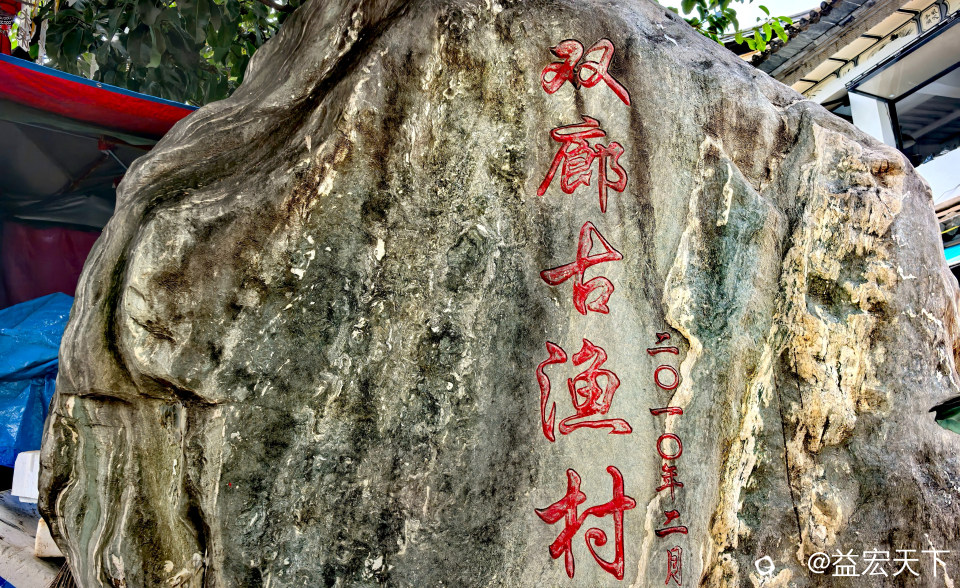 双廊古渔村
二〇一〇年二月
@益宏天下